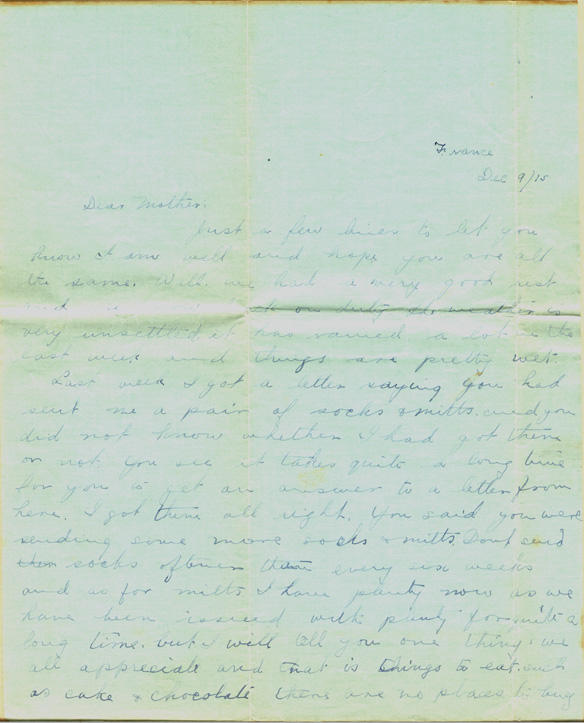 France
Dec 9/15
Dear Mother.
Just a few lines to let you
know I am well and hope you are all
the same. Well we had a very good rest
and back on duty the weather is
very unsettled, it has rained a lot in the
last week and things are pretty wet.
Last week I got a letter saying you had
sent me a pair of socks & mitts. and you
did not know whether I had got them
or not you see it takes quite a long time
for you to get an answer to a letter from
here. I got them all right. You said you were
sending some more socks & mitts. Dont send
socks oftener than every six weeks
and as for mitts I have plenty now as we
have been issued with plenty for quite a
long time. but I will tell you one thing we
all appreciate and that is things to eat. such
as cake & chocolate there are no places to buy